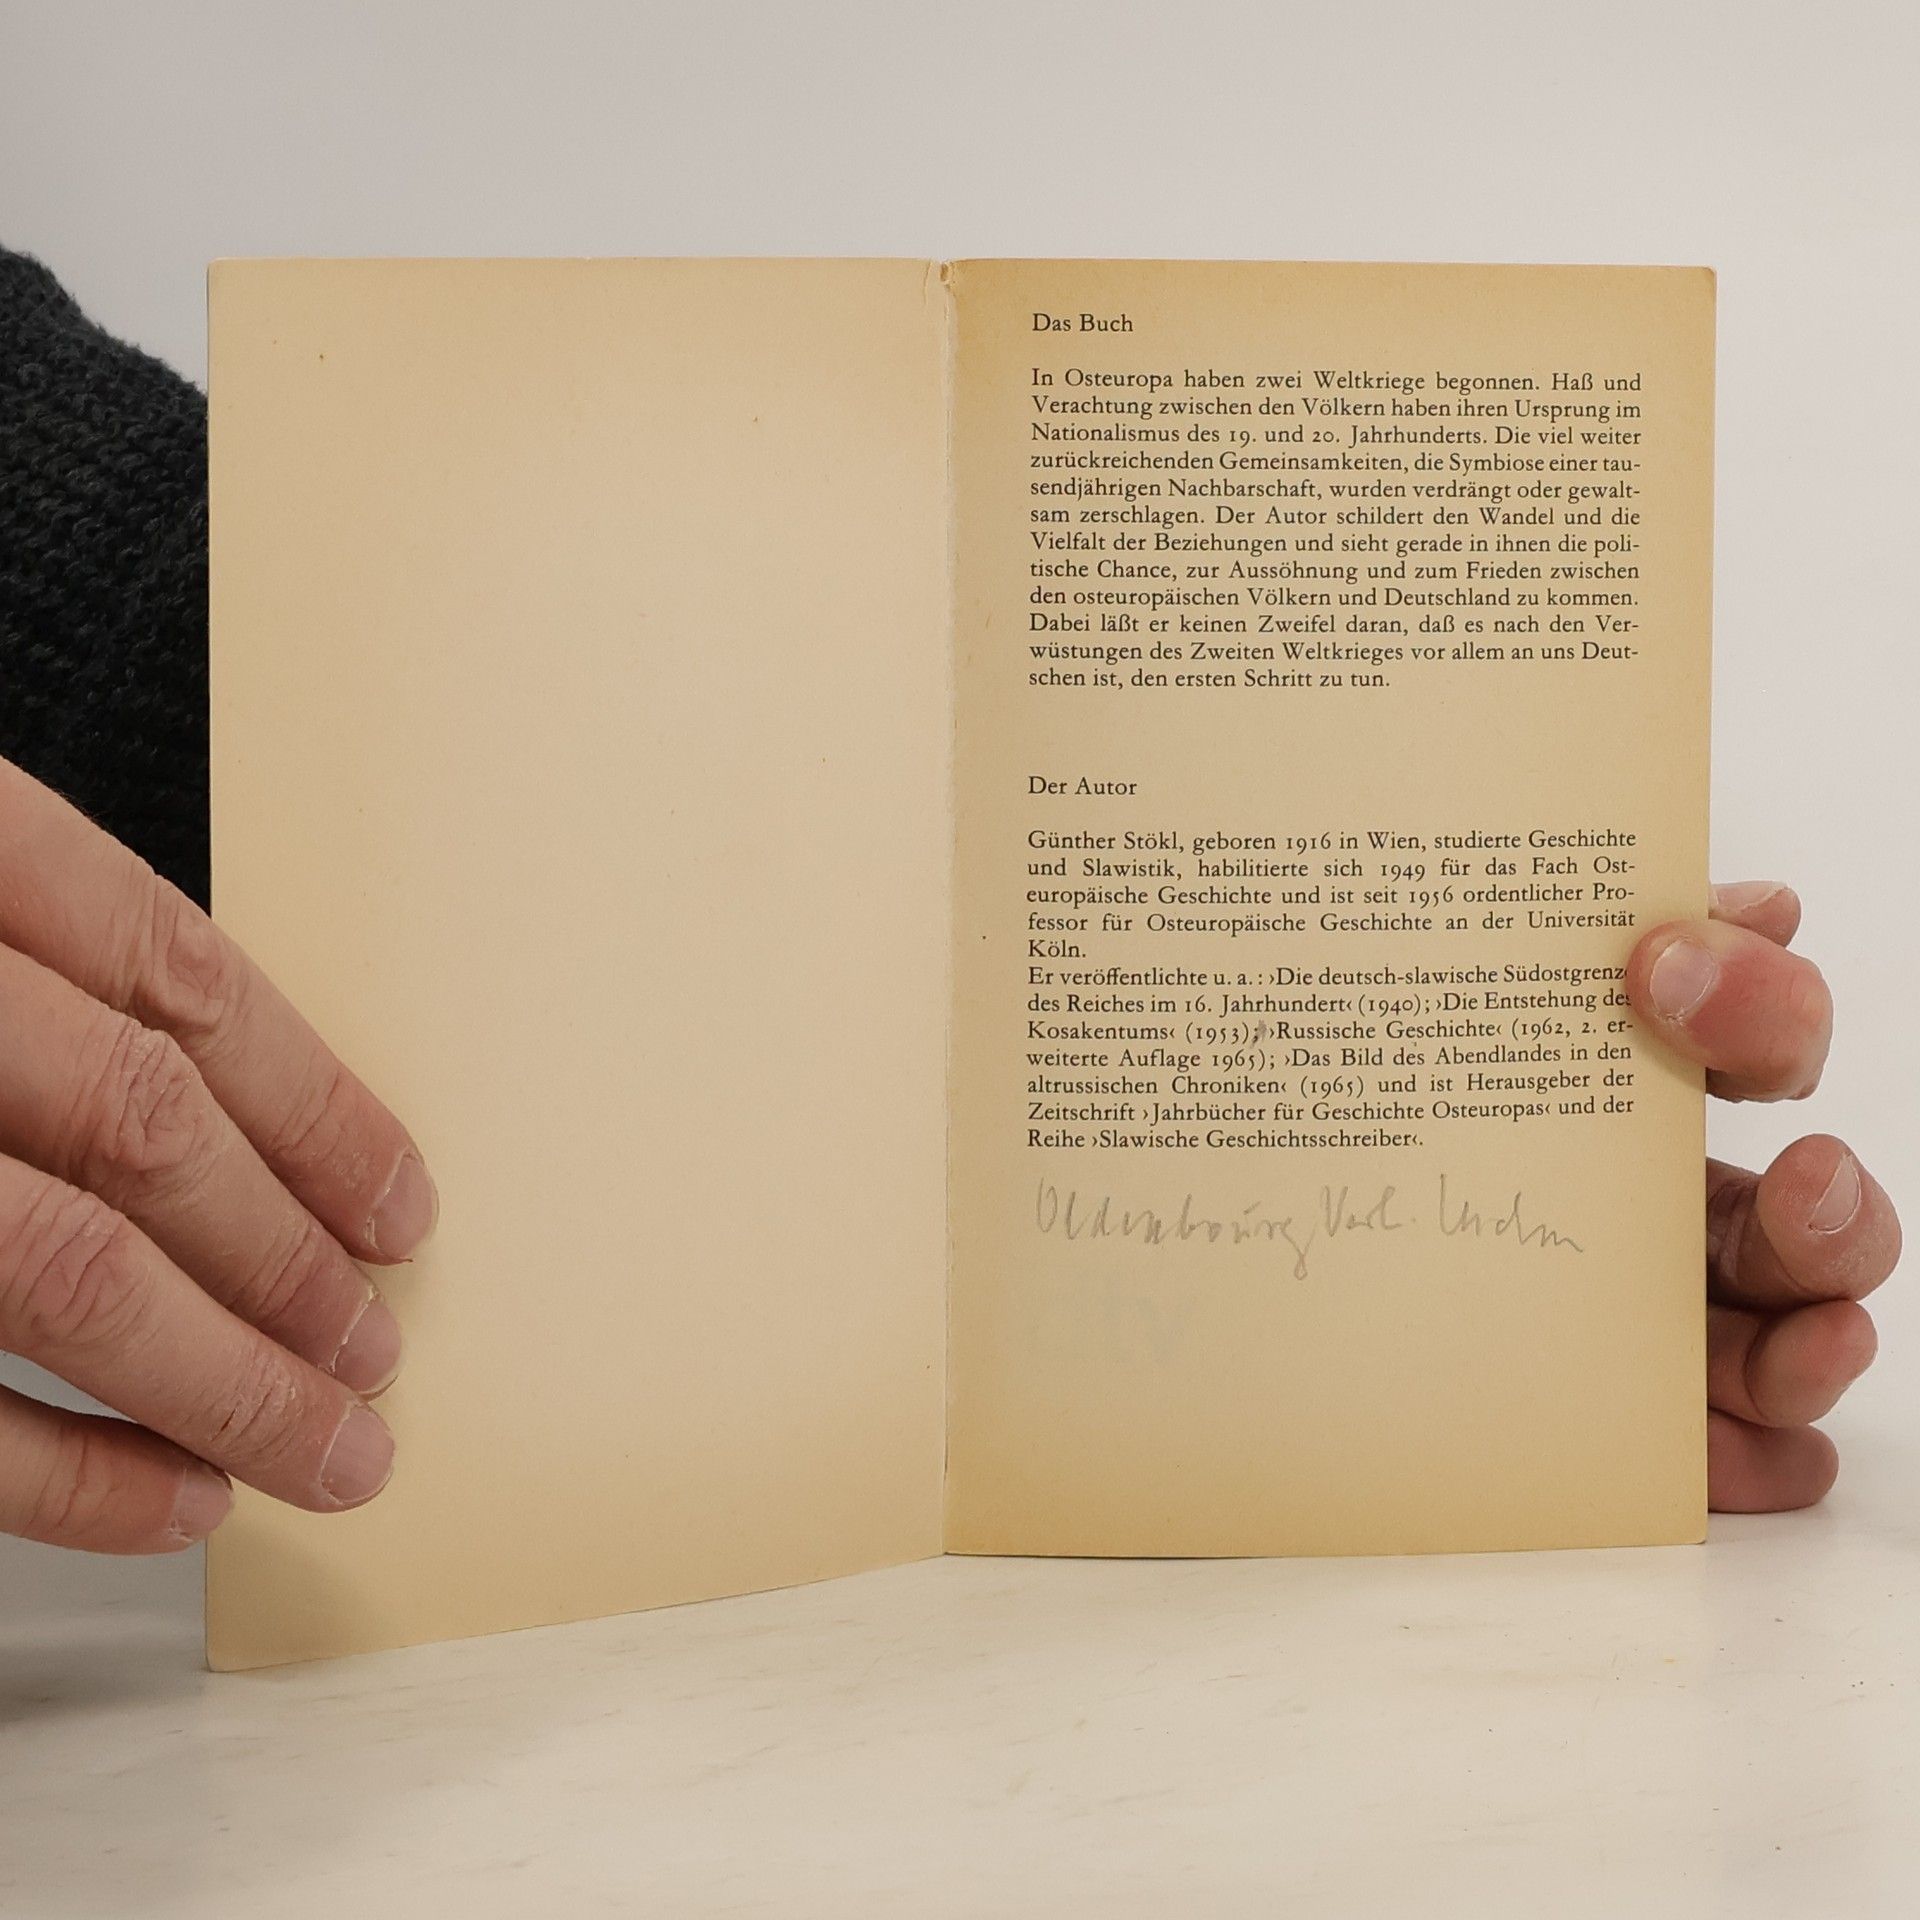 Das Buch
In Osteuropa haben zwei Weltkriege begonnen. Haß und
Verachtung zwischen den Völkern haben ihren Ursprung im
Nationalismus des 19. und 20. Jahrhunderts. Die viel weiter
zurückreichenden Gemeinsamkeiten, die Symbiose einer tau-
sendjährigen Nachbarschaft, wurden verdrängt oder gewalt-
sam zerschlagen. Der Autor schildert den Wandel und die
Vielfalt der Beziehungen und sieht gerade in ihnen die poli-
tische Chance, zur Aussöhnung und zum Frieden zwischen
den osteuropäischen Völkern und Deutschland zu kommen.
Dabei läßt er keinen Zweifel daran, daß es nach den Ver-
wüstungen des Zweiten Weltkrieges vor allem an uns Deut-
schen ist, den ersten Schritt zu tun.
Der Autor
Günther Stökl, geboren 1916 in Wien, studierte Geschichte
und Slawistik, habilitierte sich 1949 für das Fach Ost-
europäische Geschichte und ist seit 1956 ordentlicher Pro-
fessor für Osteuropäische Geschichte an der Universität
Köln.
Er veröffentlichte u. a.: ›Die deutsch-slawische Südostgrenze
des Reiches im 16. Jahrhundert‹ (1940); ›Die Entstehung des
Kosakentums‹ (1953); ›Russische Geschichte‹ (1962, 2. er-
weiterte Auflage 1965); ›Das Bild des Abendlandes in den
altrussischen Chroniken‹ (1965) und ist Herausgeber der
Zeitschrift ›Jahrbücher für Geschichte Osteuropas‹ und der
Reihe ›Slawische Geschichtsschreiber‹.
Oldenbourg Verl.